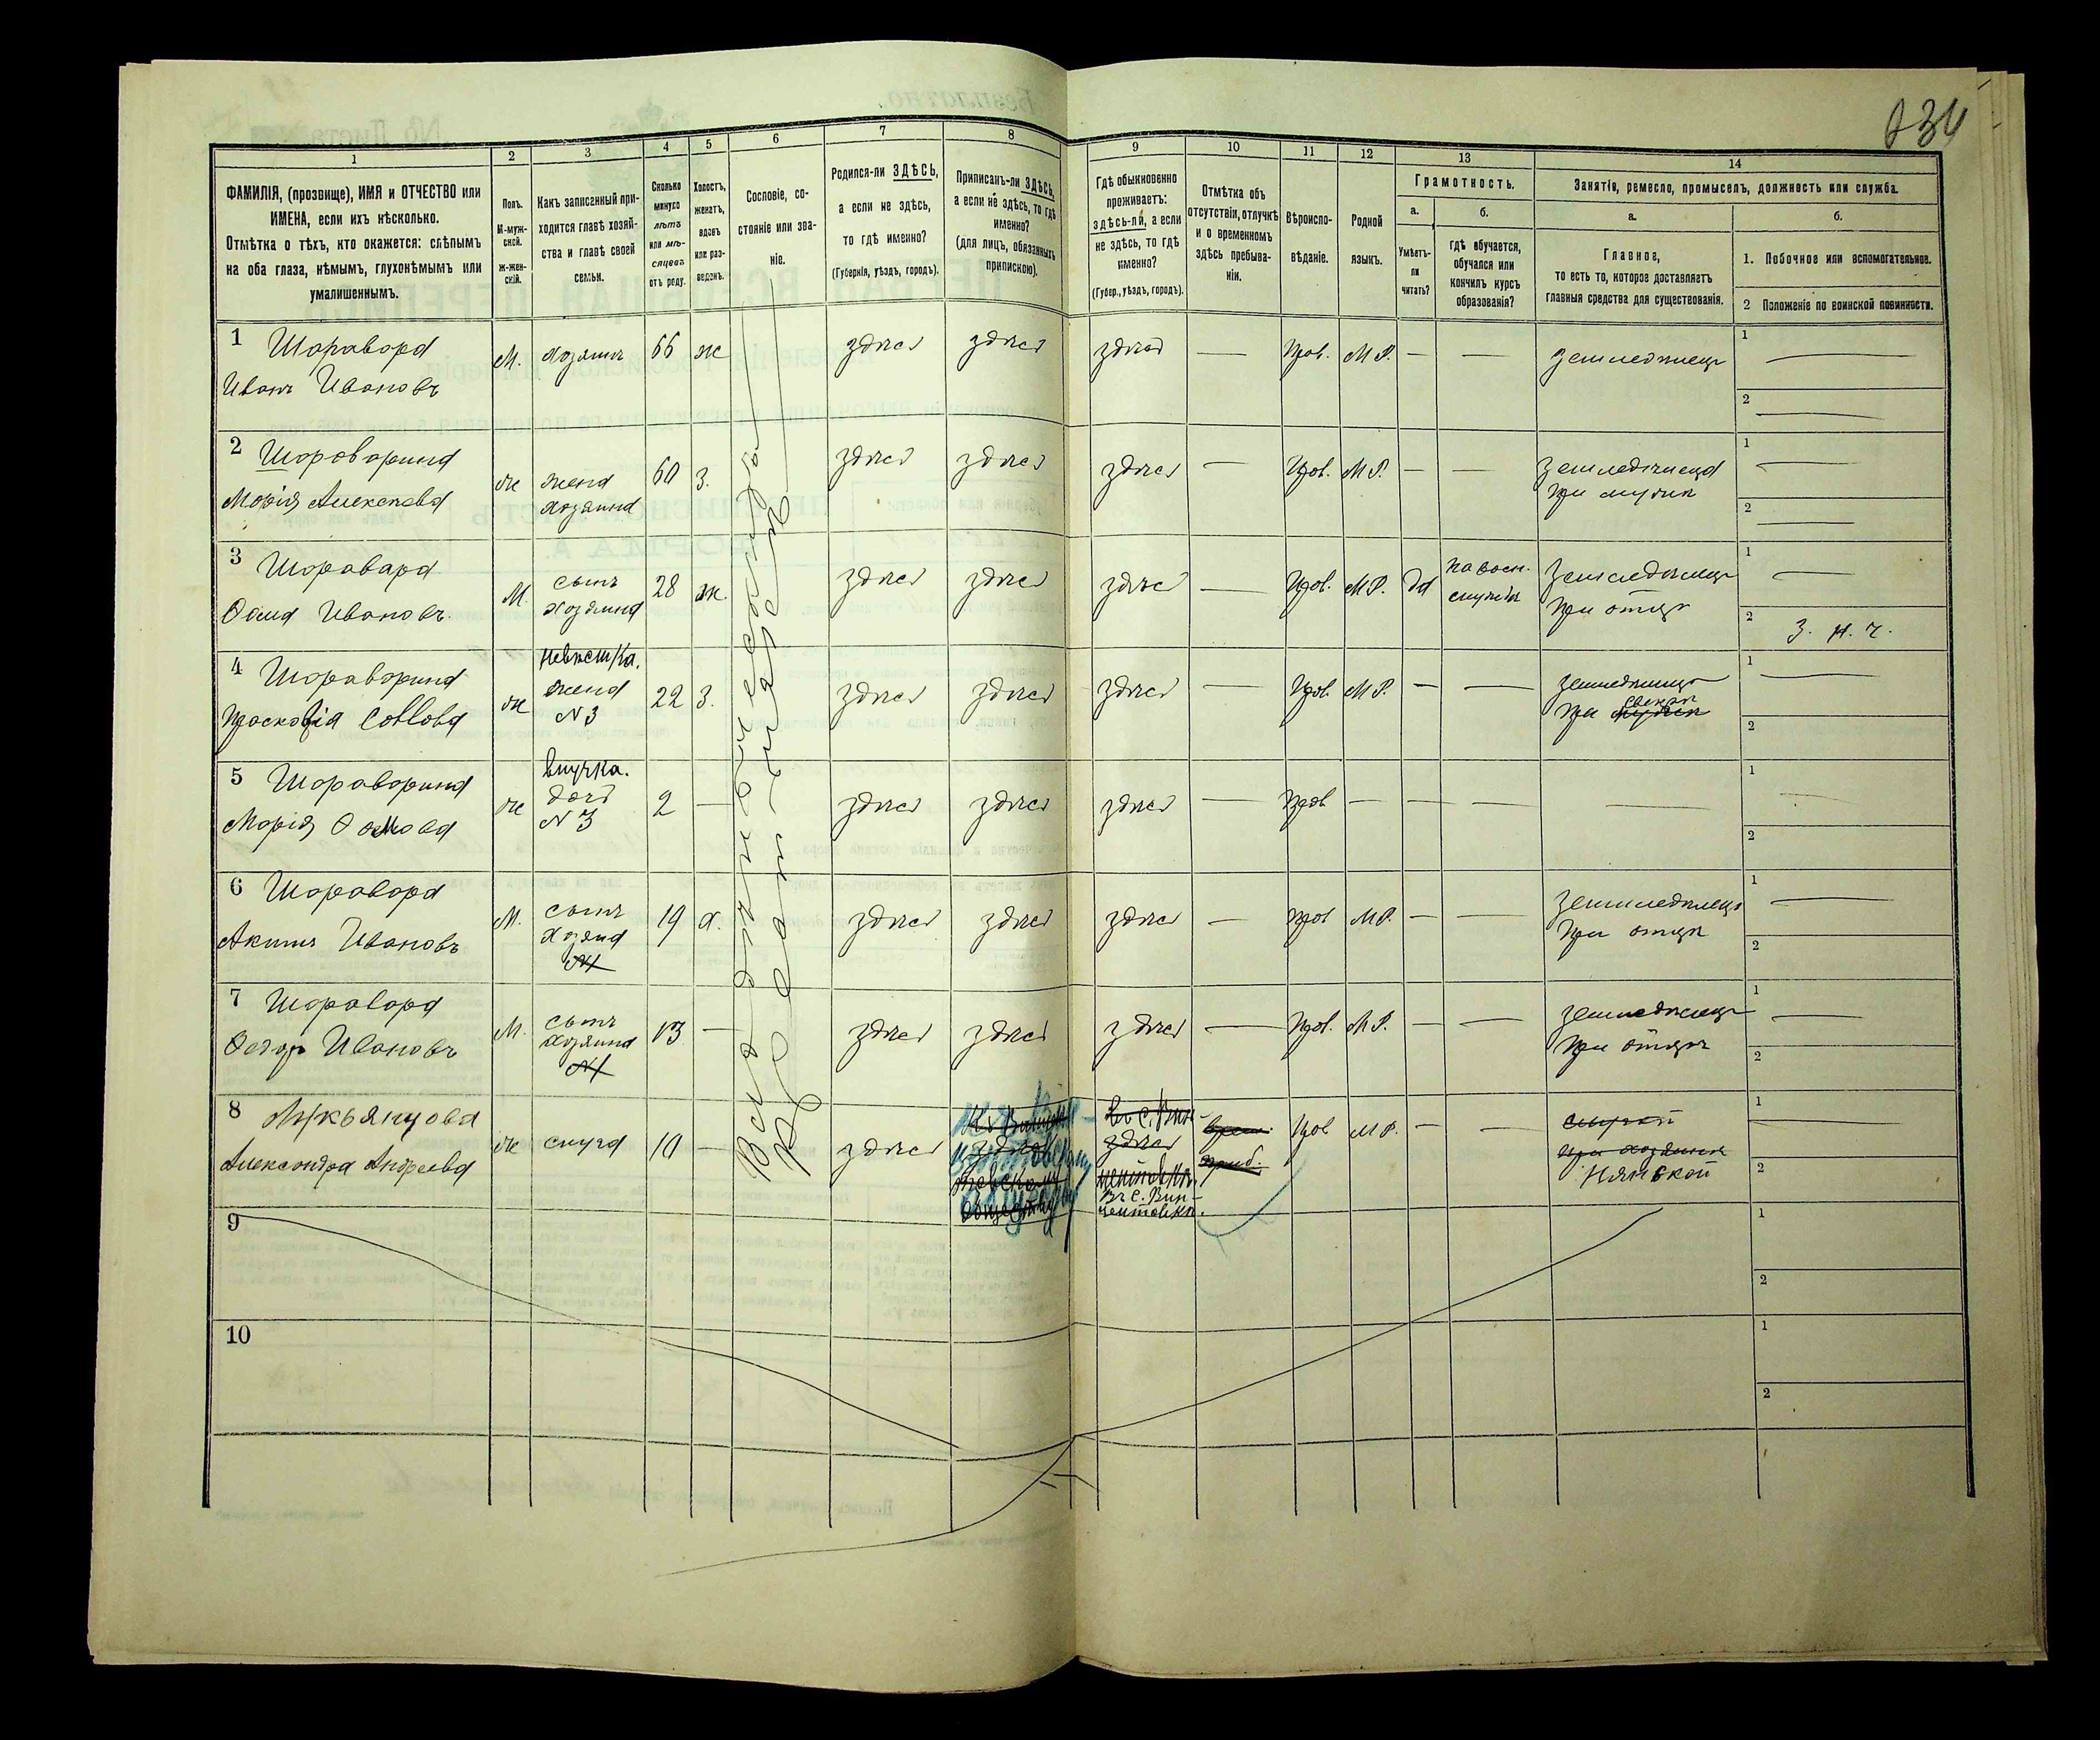 1
2
3
4
5
6
7
8
9
10
11
12
13
14
ФАМИЛІЯ, (прозвище), ИМЯ и ОТЧЕСТВО или
ИМЕНА, если ихъ нѣсколько.
Отмѣтка о тѣхъ, кто окажется: слѣпымъ
на оба глаза, нѣмымъ, глухонѣмымъ или
умалишеннымъ.
Полъ.
М-муж-
ской.
Ж-жен-
скій.
Какъ записанный при-
ходится главѣ хозяй-
ства и главѣ своей
семьи.
Сколько
минуло
лѣтъ
или мѣ-
сяцевъ
отъ роду.
Холостъ,
женатъ,
вдовъ
или раз-
веденъ.
Сословіе, со-
стояніе или зва-
ніе.
Родился-ли ЗДѢСЬ,
а если не здѣсь,
то гдѣ именно?
(Губернія, уѣздъ, городъ).
Приписанъ-ли ЗДѢСЬ,
а если не здѣсь, то гдѣ
именно?
(для лицъ, обязанныхъ
припискою).
Гдѣ обыкновенно
проживаетъ:
здѣсь-ли, а если
не здѣсь, то гдѣ
именно?
(Губер., уѣздъ, городъ).
Отмѣтка объ
отсутствіи, отлучкѣ
и о временномъ
здѣсь пребыва-
ніи.
Вѣроиспо-
вѣданіе.
Родной
языкъ.
Грамотность.
а.
Умѣетъ-
ли
читать?
б.
гдѣ обучается,
обучался или
кончилъ курсъ
образованія?
Занятіе, ремесло, промыселъ, должность или служба.
а.
Главное,
то есть то, которое доставляетъ
главныя средства для существованія.
б.
1. Побочное или вспомогательное.
2 Положеніе по воинской повинности.
1 Шаравара
Иванъ Ивановъ
М.
хозяинъ
66
ж
здѣсь
здѣсь
здѣсь
—
Прав.
М Р.
—
—
земледѣлецъ
1 —
2 —
2 Шараварина
Марія Алексѣева
ж
жена
хозяина
60
з.
здѣсь
здѣсь
здѣсь
—
Прав.
М Р.
—
—
земледѣлица
при мужѣ
1 —
2 —
3 Шаравара
Ѳома Ивановъ.
М.
сынъ
хозяина
28
ж.
здѣсь
здѣсь
здѣсь
—
Прав.
М Р.
да
на воен.
службѣ
земледѣлецъ
при отцѣ
1 —
2 З. н. ч.
4 Шараварина
Прасковія Саввова
ж
невѣстка.
жена
N 3
22
з.
здѣсь
здѣсь
здѣсь
—
Прав.
М Р.
—
—
земледѣлица
свекрѣ
при мужѣ
1 —
2
5 Шараварина
Марія Ѳомова
ж
внучка.
дочь
N 3
2
—
здѣсь
здѣсь
здѣсь
—
Прав
—
—
—
—
1 —
2
6 Шаравара
Акимъ Ивановъ
М.
сынъ
хозяина
19
х.
здѣсь
здѣсь
здѣсь
—
Прав
М Р.
—
—
земледѣлецъ
при отцѣ
1 —
2
7 Шаравара
Ѳедоръ Ивановъ
М.
сынъ
хозяина
13
—
здѣсь
здѣсь
здѣсь
—
Прав.
М Р.
—
—
земледѣлецъ
при отцѣ
1 —
2
8 Лукьянцова
Александра Андреева
ж
слуга
10
—
здѣсь
здѣсь
Въ с. Вин-
здѣсь
центовкѣ.
Въ с. Вин-
центовкѣ.
врем.
приб.
Прав
М Р.
—
—
слугой
при хозяинѣ
Нянькой
1 —
2
9
1
2
10
1
2